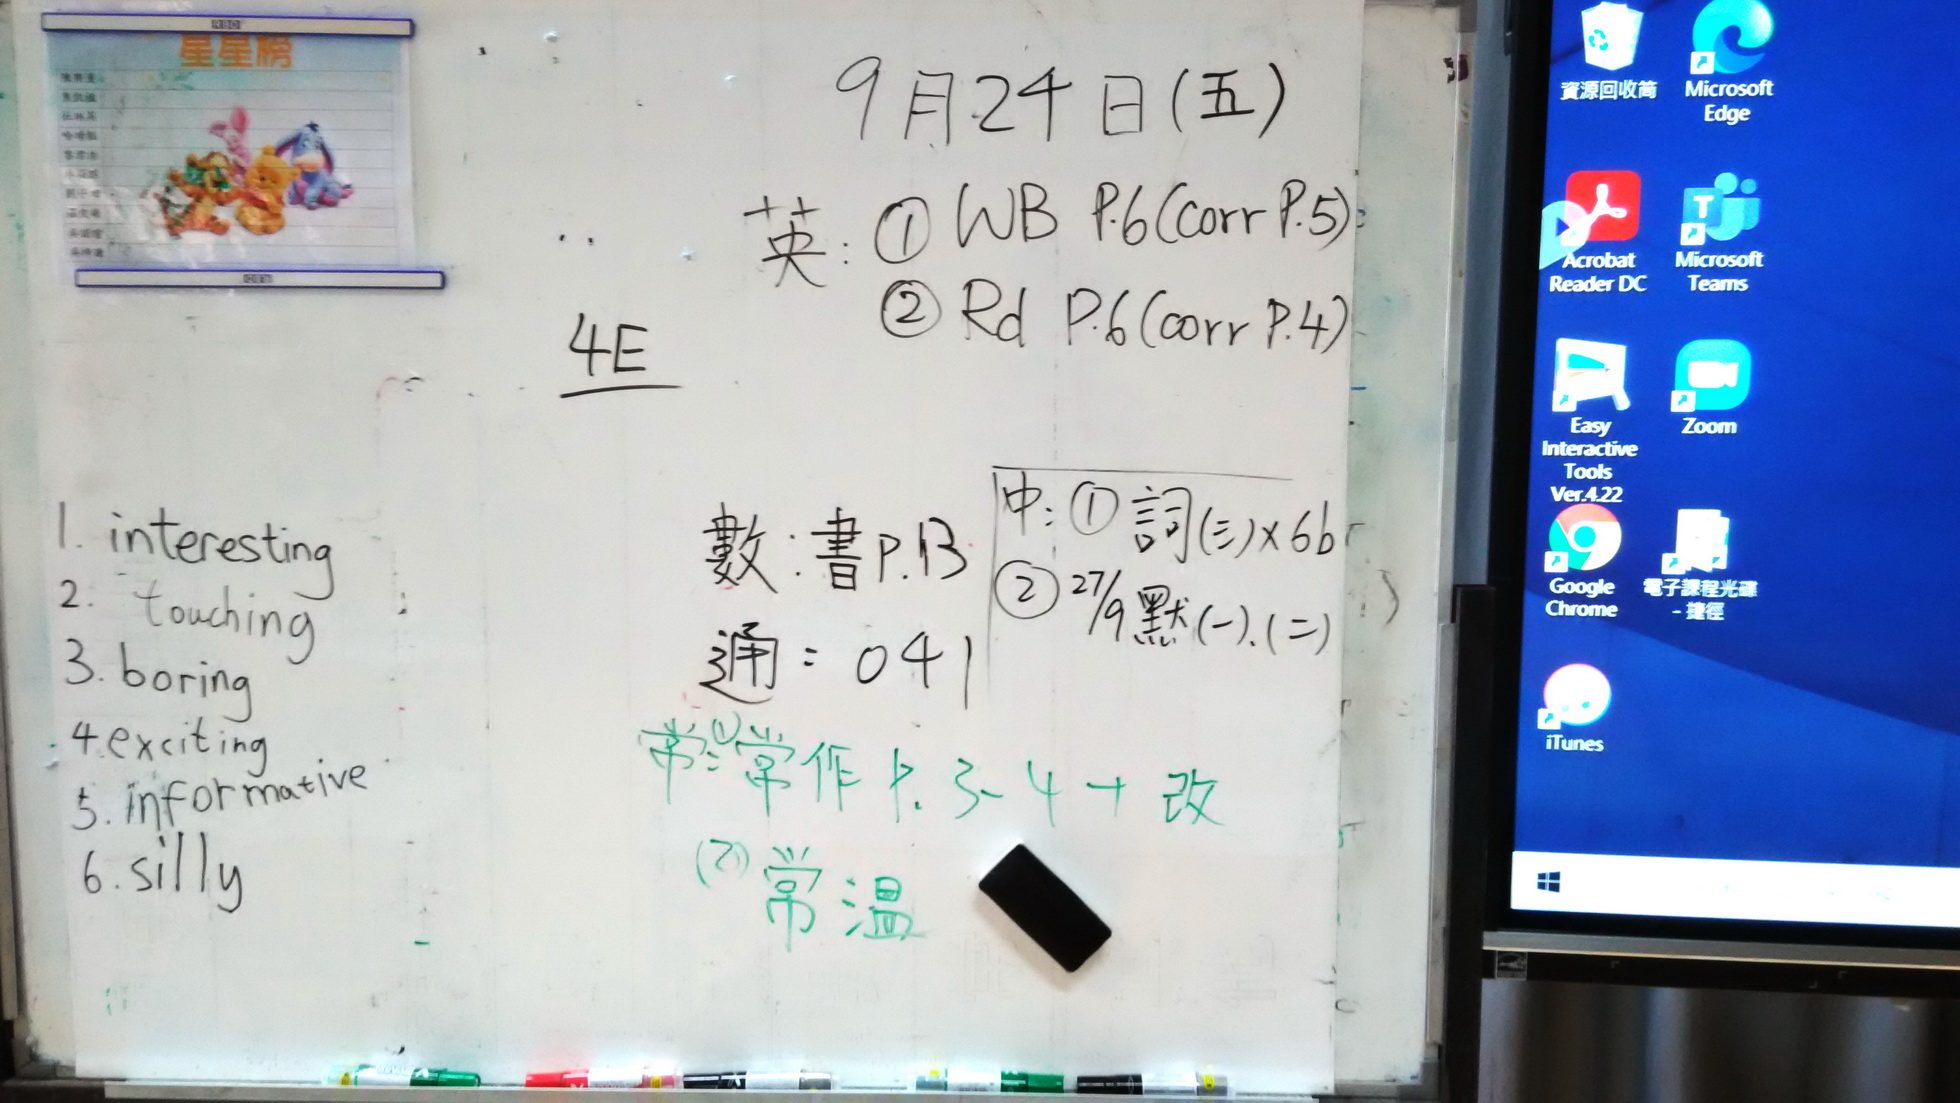 星星榜
9月24日(五)
英:① WB P.6(corr P.5)
② Rd P.6(corr P.4)
4E
1. interesting
2. touching
3. boring
4. exciting
5. informative
6. silly
數:書P.13
通:041
中:①詞(三)x6b
②27/9默(一).(二)
常:(1)常作P.3-4+改
(2)常溫
資源回收筒
Microsoft
Edge
Acrobat
Reader DC
Microsoft
Teams
Easy
Interactive
Tools
Ver.4.22
Zoom
Google
Chrome
電子課程光碟
- 捷徑
iTunes